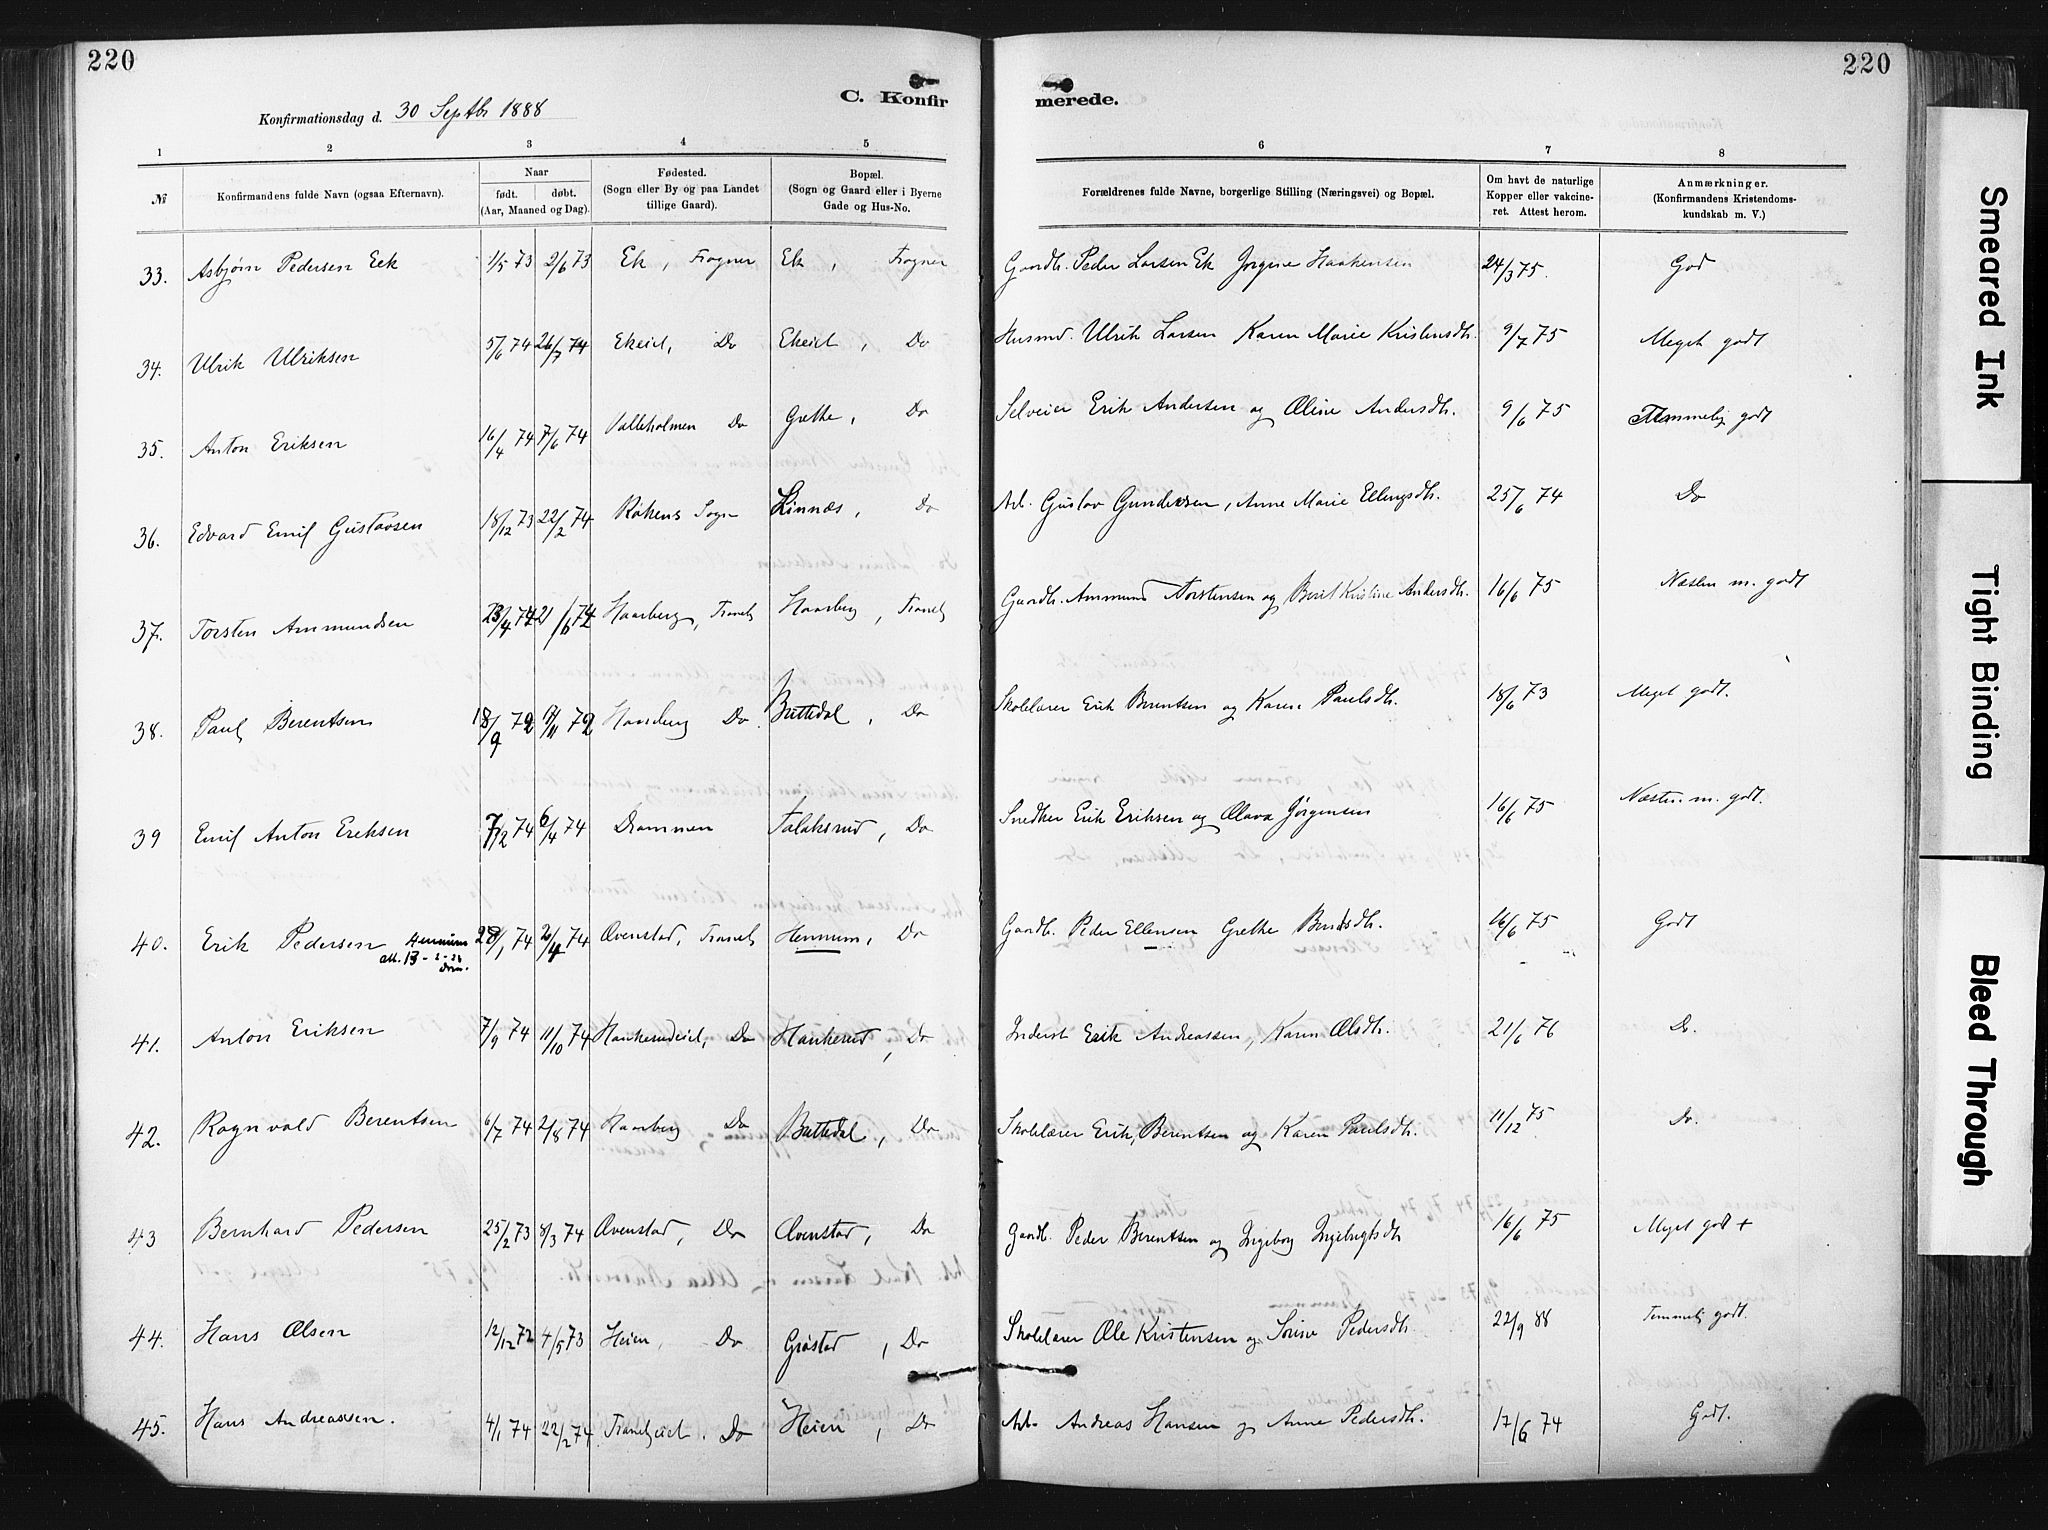 220
220
C. Konfir
merede.
Konfirmationsdag d. 30 Septbr 1888
1 2 3 4 5 6 7 8
№ Konfirmandens fulde Navn (ogsaa Efternavn). Naar født. døbt. (Aar, Maaned og Dag). Fødested. (Sogn eller By og paa Landet tillige Gaard). Bopæl. (Sogn og Gaard eller i Byerne Gade og Hus-No. Forældrenes fulde Navne, borgerlige Stilling (Næringsvei) og Bopæl. Om havt de naturlige Kopper eller vakcineret. Attest herom. Anmærkninger. (Konfirmandens Kristendomskundskab m. V.)
33. Asbjørn Pedersen Eek 1/5 73 2/6 73 Ek, Frogner Ek, Frogner Gaardb. Peder Larsen Ek Jørgine Haakensen 24/3 75. God
34. Ulrik Ulriksen 5/6 74 26/7 74 Ekeiet, Do Ekeiet, Do Husmd. Ulrik Larsen Karen Marie Kristensdtr. 9/7 75 Meget godt
35. Anton Eriksen 16/4 74 7/6 74 Valleholmen Do Grette, Do Selveier Erik Andersen og Oline Andersdtr. 9/6 75 Temmelig godt
36. Edvard Emil Gustavsen 18/12 73 22/2 74 Røkens Sogn Linnæs, Do Arb. Gustav Gundersen, Anne Marie Ellingsdtr. 25/6 74 Do
37. Torsten Ammundsen 23/4 72 2/6 72 Haarberg, Tranby Haarberg, Tranby Gaardb. Ammund Torstensen og Berit Kristine Andersdtr. 16/6 75 Næsten m. godt
38. Paul Berentsen 18/9 72 /11 72 Haarberg Do Buttedal, Do Skolelærer Erik Berentsen og Karen Paulsdtr. 18/6 73 Meget godt.
39 Emil Anton Eriksen 7/12 74 6/4 74 Drammen Salaksrud, Do Snedker Erik Eriksen og Olava Jørgensen 16/6 75 Næsten m. godt.
40. Erik Pedersen Hennum 28/1 74 2/4 74 Ovenstad, Tranby Hennum, Do Gaardb. Peder Ellensen Grethe Berntsdtr. 16/6 75 Godt
41. Anton Eriksen 7/9 74 11/10 74 Haukerudeiet, Do Haukerud, Do Inderst Erik Andreassen, Karen Olsdtr. 21/6 76 Do.
42. Ragnvald Berentsen 6/7 74 2/8 74 Haarberg Do Buttedal, Do Skolelærer Erik Berentsen og Karen Paulsdtr. 11/12 75 Do.
43 Bernhard Pedersen 25/2 73 8/3 74 Ovenstad, Do Ovenstad, Do Gaardb. Peder Berentsen og Ingeborg Ingebrigtsdtr 16/6 75 Meget godt +
44. Hans Olsen 12/12 72 4/5 73 Heien, Do Grøstad, Do Skolelærer Ole Kristensen og Sørine Pedersdtr. 22/9 88 Temmelig godt.
45. Hans Andreassen. 4/1 74 22/2 74 Tranbyeiet. Do Heien, Do Arb. Andreas Hansen og Anne Pedersdtr. 17/6 74 Godt.
Smeared Ink
Tight Binding
Bleed Through